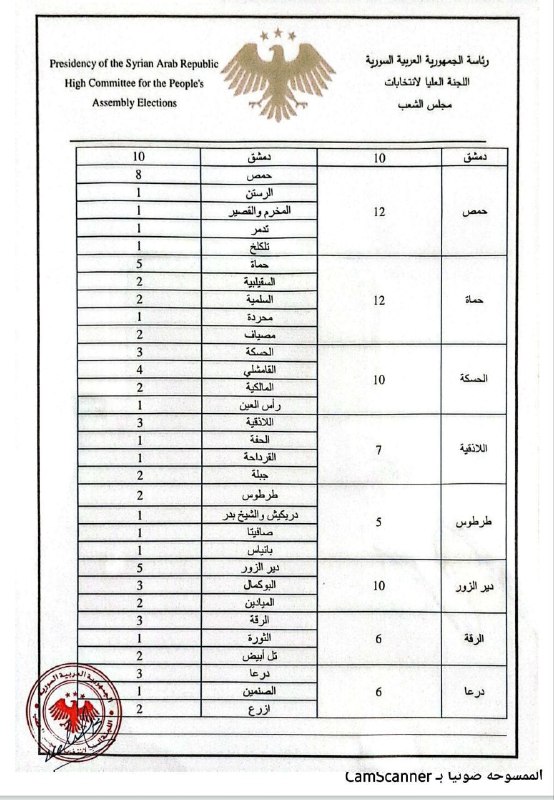 Presidency of the Syrian Arab Republic
High Committee for the People's
Assembly Elections
رئاسة الجمهورية العربية السورية
اللجنة العليا لانتخابات
مجلس الشعب
دمشق 10 دمشق 10
حمص 12 حمص 8
الرستن 1
المخرم والقصير 1
تدمر 1
تلكلخ 1
حماة 12 حماة 5
السقيلبية 2
السلمية 2
محردة 1
مصياف 2
الحسكة 10 الحسكة 3
القامشلي 4
المالكية 2
رأس العين 1
اللاذقية 7 اللاذقية 3
الحفة 1
القرداحة 1
جبلة 2
طرطوس 5 طرطوس 2
دريكيش والشيخ بدر 1
صافيتا 1
بانياس 1
دير الزور 10 دير الزور 5
البوكمال 3
الميادين 2
الرقة 6 الرقة 3
الثورة 1
تل أبيض 2
درعا 6 درعا 3
الصنمين 1
ازرع 2
الجمهورية العربية السورية
الممسوحة ضوئيا بـ CamScanner